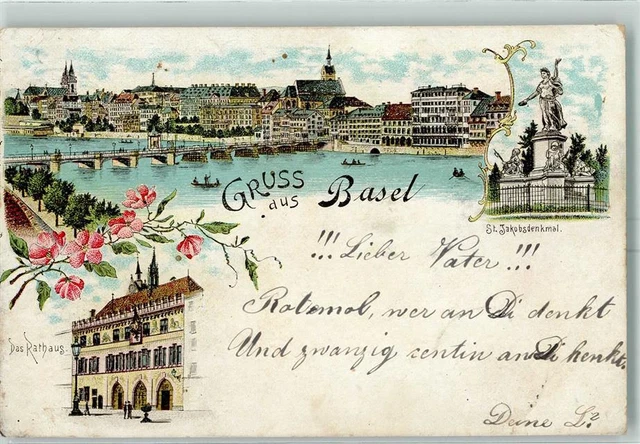 GRUSS
aus Basel
St. Jakobsdenkmal.
!!! Lieber Vater !!!
Rotemol, wer an Di denkt
Und zwanzig centin an Di henkt.
Das Rathaus.
Deine L.